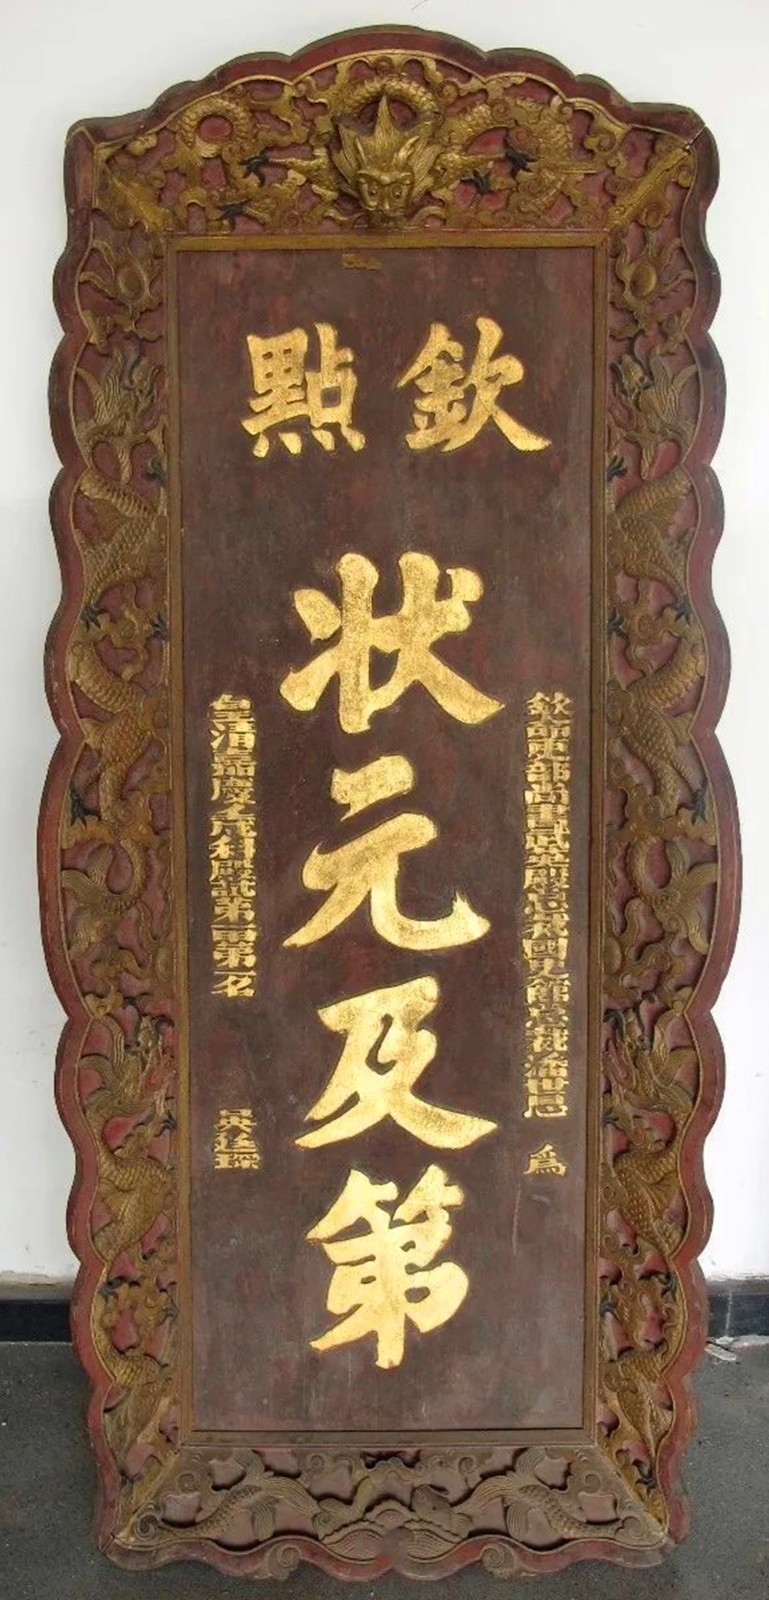 欽點
状元及第
欽命吏部尚書武英殿總裁國史館總裁潘世恩 爲
皇清嘉慶壬戌科殿試第一甲第一名 吳廷琛